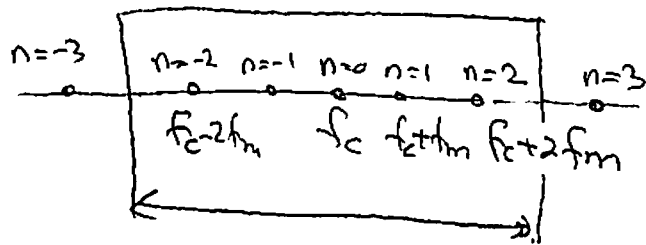 n=-3 n=-2 n=-1 n=0 n=1 n=2 n=3
fc-2fm fc fc+fm fc+2fm